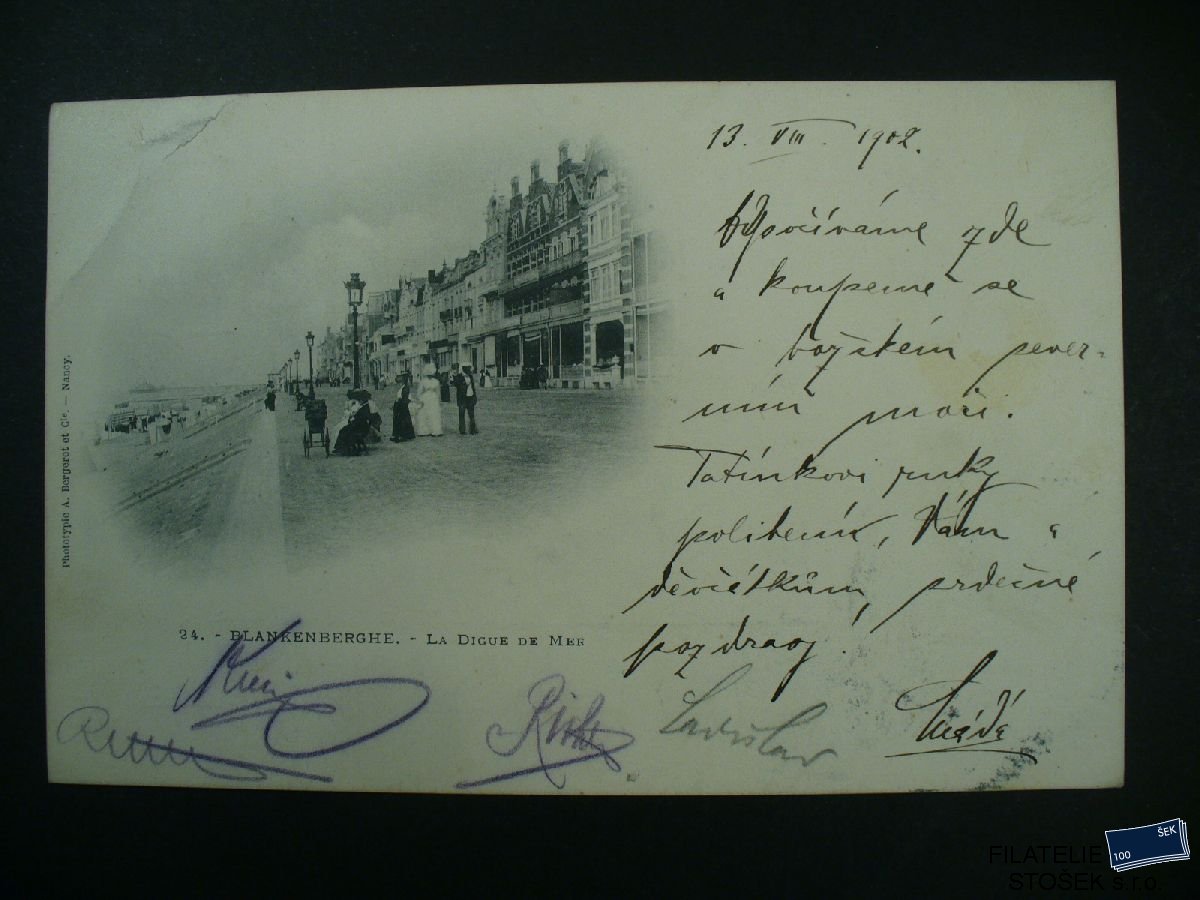 13. VIII. 1902.
Odpočíváme zde
a koupeme se
v božském sever-
ním moři.
Tatínkovi ruky
políbení, Vám a
děvčátkům, srdečné
pozdravy!
Láďa
24. - BLANKENBERGHE. - LA DIGUE DE MER
Phototypie A. Bergeret et Cie. — Nancy.
Ladislav
FILATELIE
STOŠEK s.r.o.
100
ŠEK